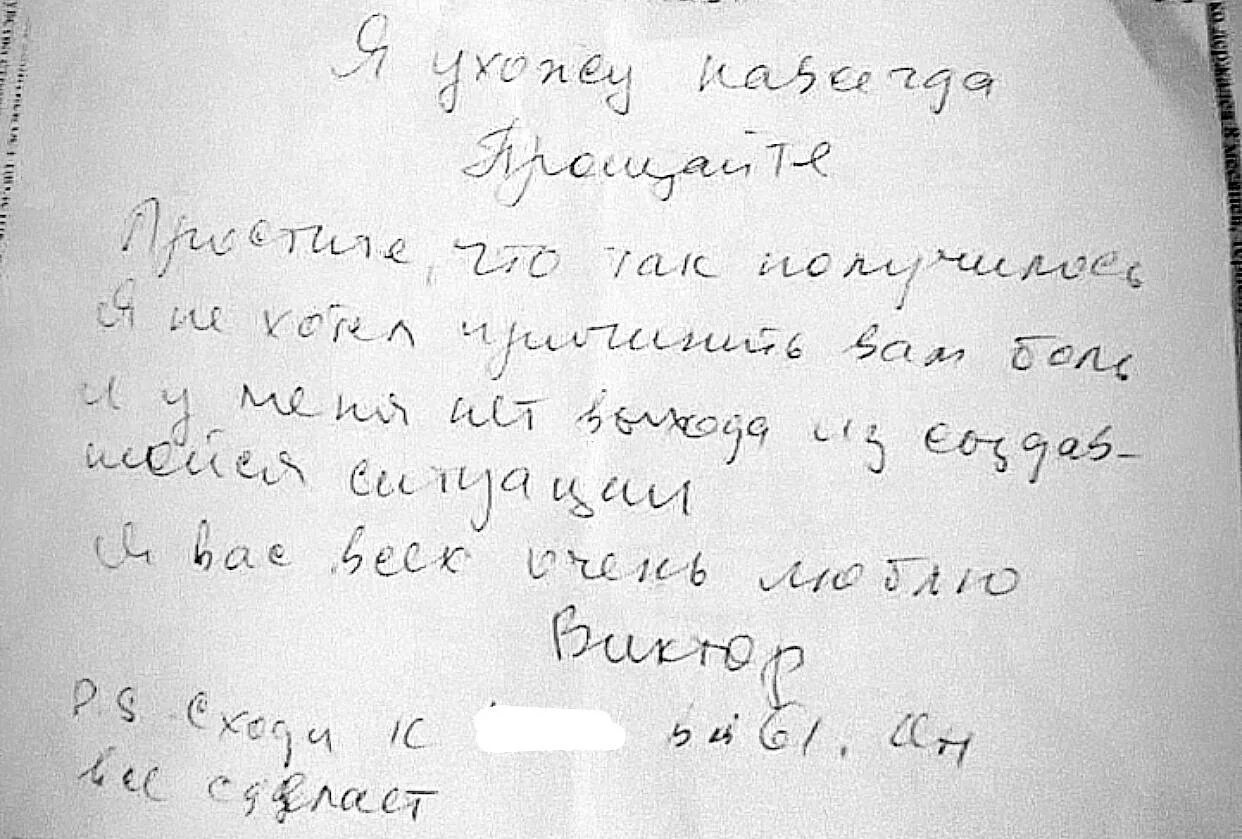 Я ухожу навсегда
Прощайте
Простите, что так получилось
Я не хотел причинить вам боль
И у меня нет выхода из создав-
шейся ситуации
Я вас всех очень люблю
Виктор
P.S Сходи к 61. Он
все сделает